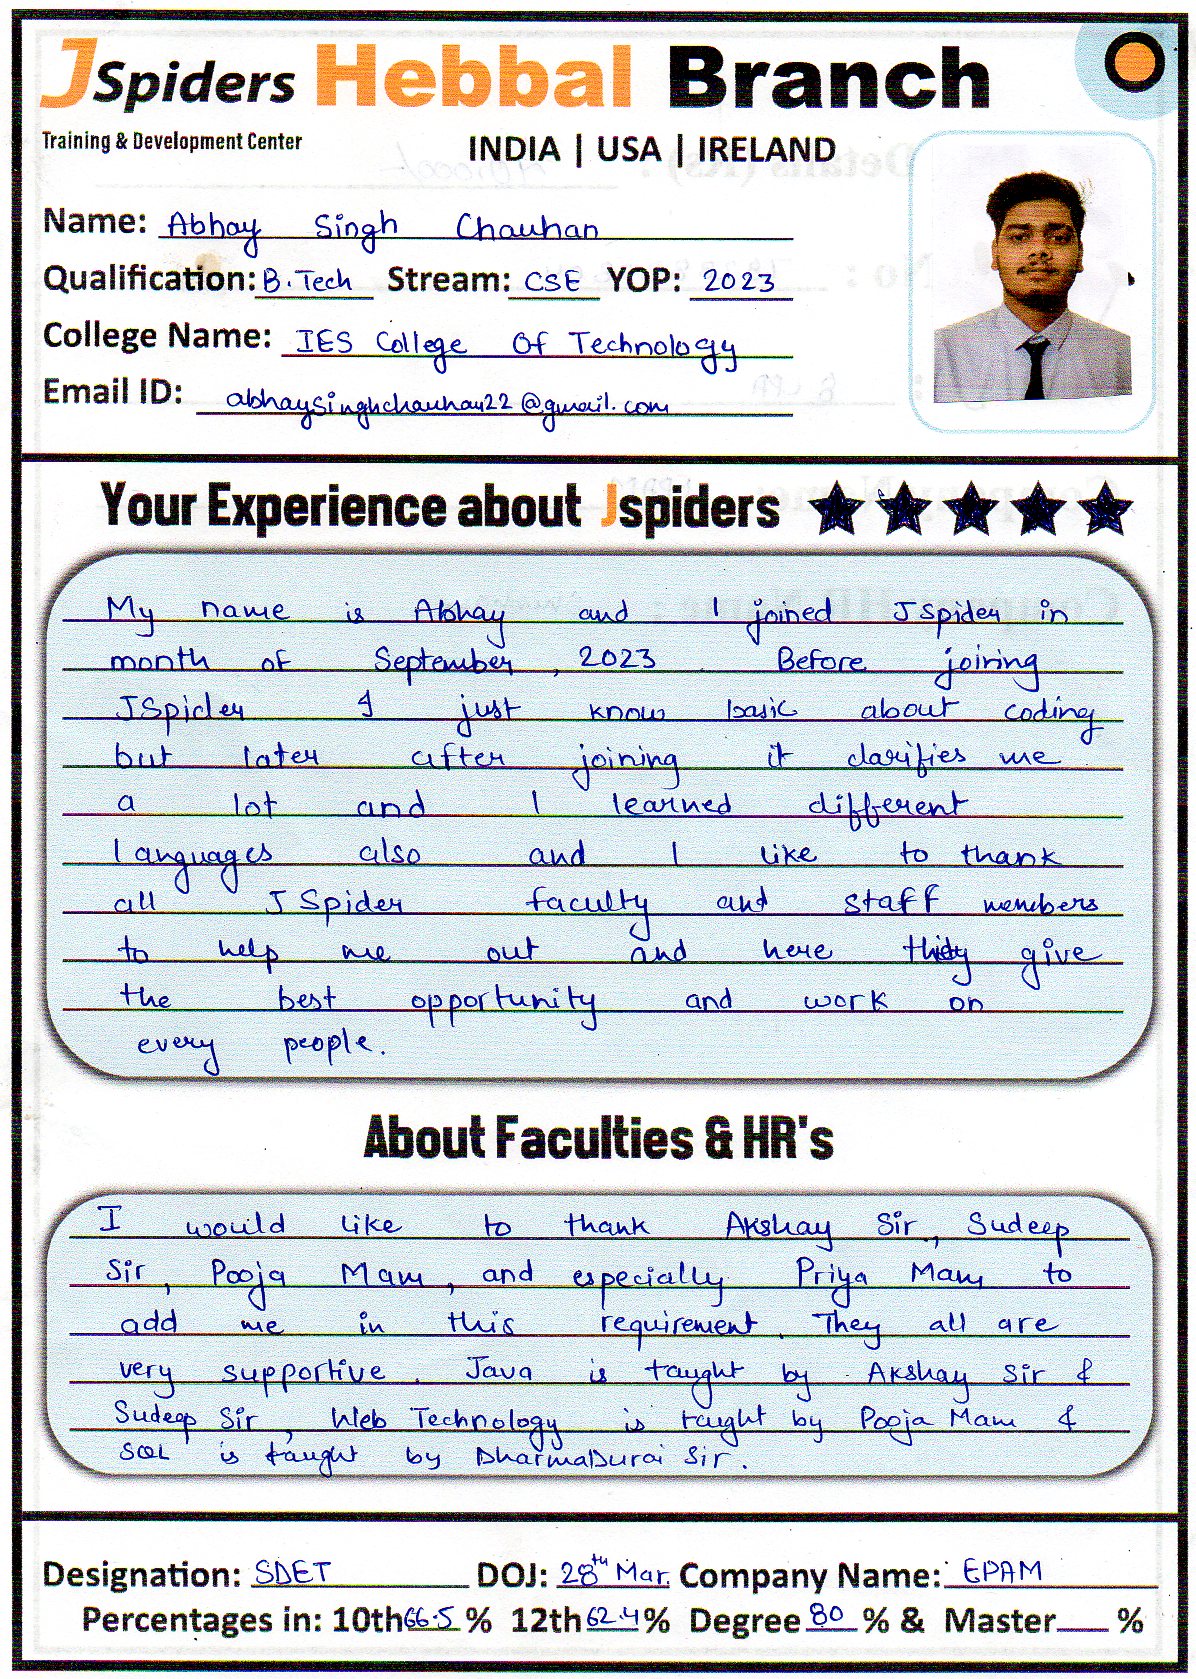 JSpiders Hebbal Branch
Training & Development Center
INDIA | USA | IRELAND
Name: Abhay Singh Chauhan
Qualification: B.Tech Stream: CSE YOP: 2023
College Name: IES College Of Technology
Email ID: abhaysinghchauhan22@gmail.com
Your Experience about Jspiders
My name is Abhay and I joined JSpider in
month of September, 2023. Before joining
JSpider I just know basic about coding
but later after joining it clarifies me
a lot and I learned different
languages also and I like to thank
all JSpider faculty and staff members
to help me out and here they give
the best opportunity and work on
every people.
About Faculties & HR's
I would like to thank Akshay Sir, Sudeep
Sir, Pooja Mam, and especially Priya Mam to
add me in this requirement. They all are
very supportive. Java is taught by Akshay Sir &
Sudeep Sir, Web Technology is taught by Pooja Mam &
SQL is taught by DharmaDurai Sir.
Designation: SDET DOJ: 28th Mar. Company Name: EPAM
Percentages in: 10th 66.5 % 12th 62.4 % Degree 80 % & Master %